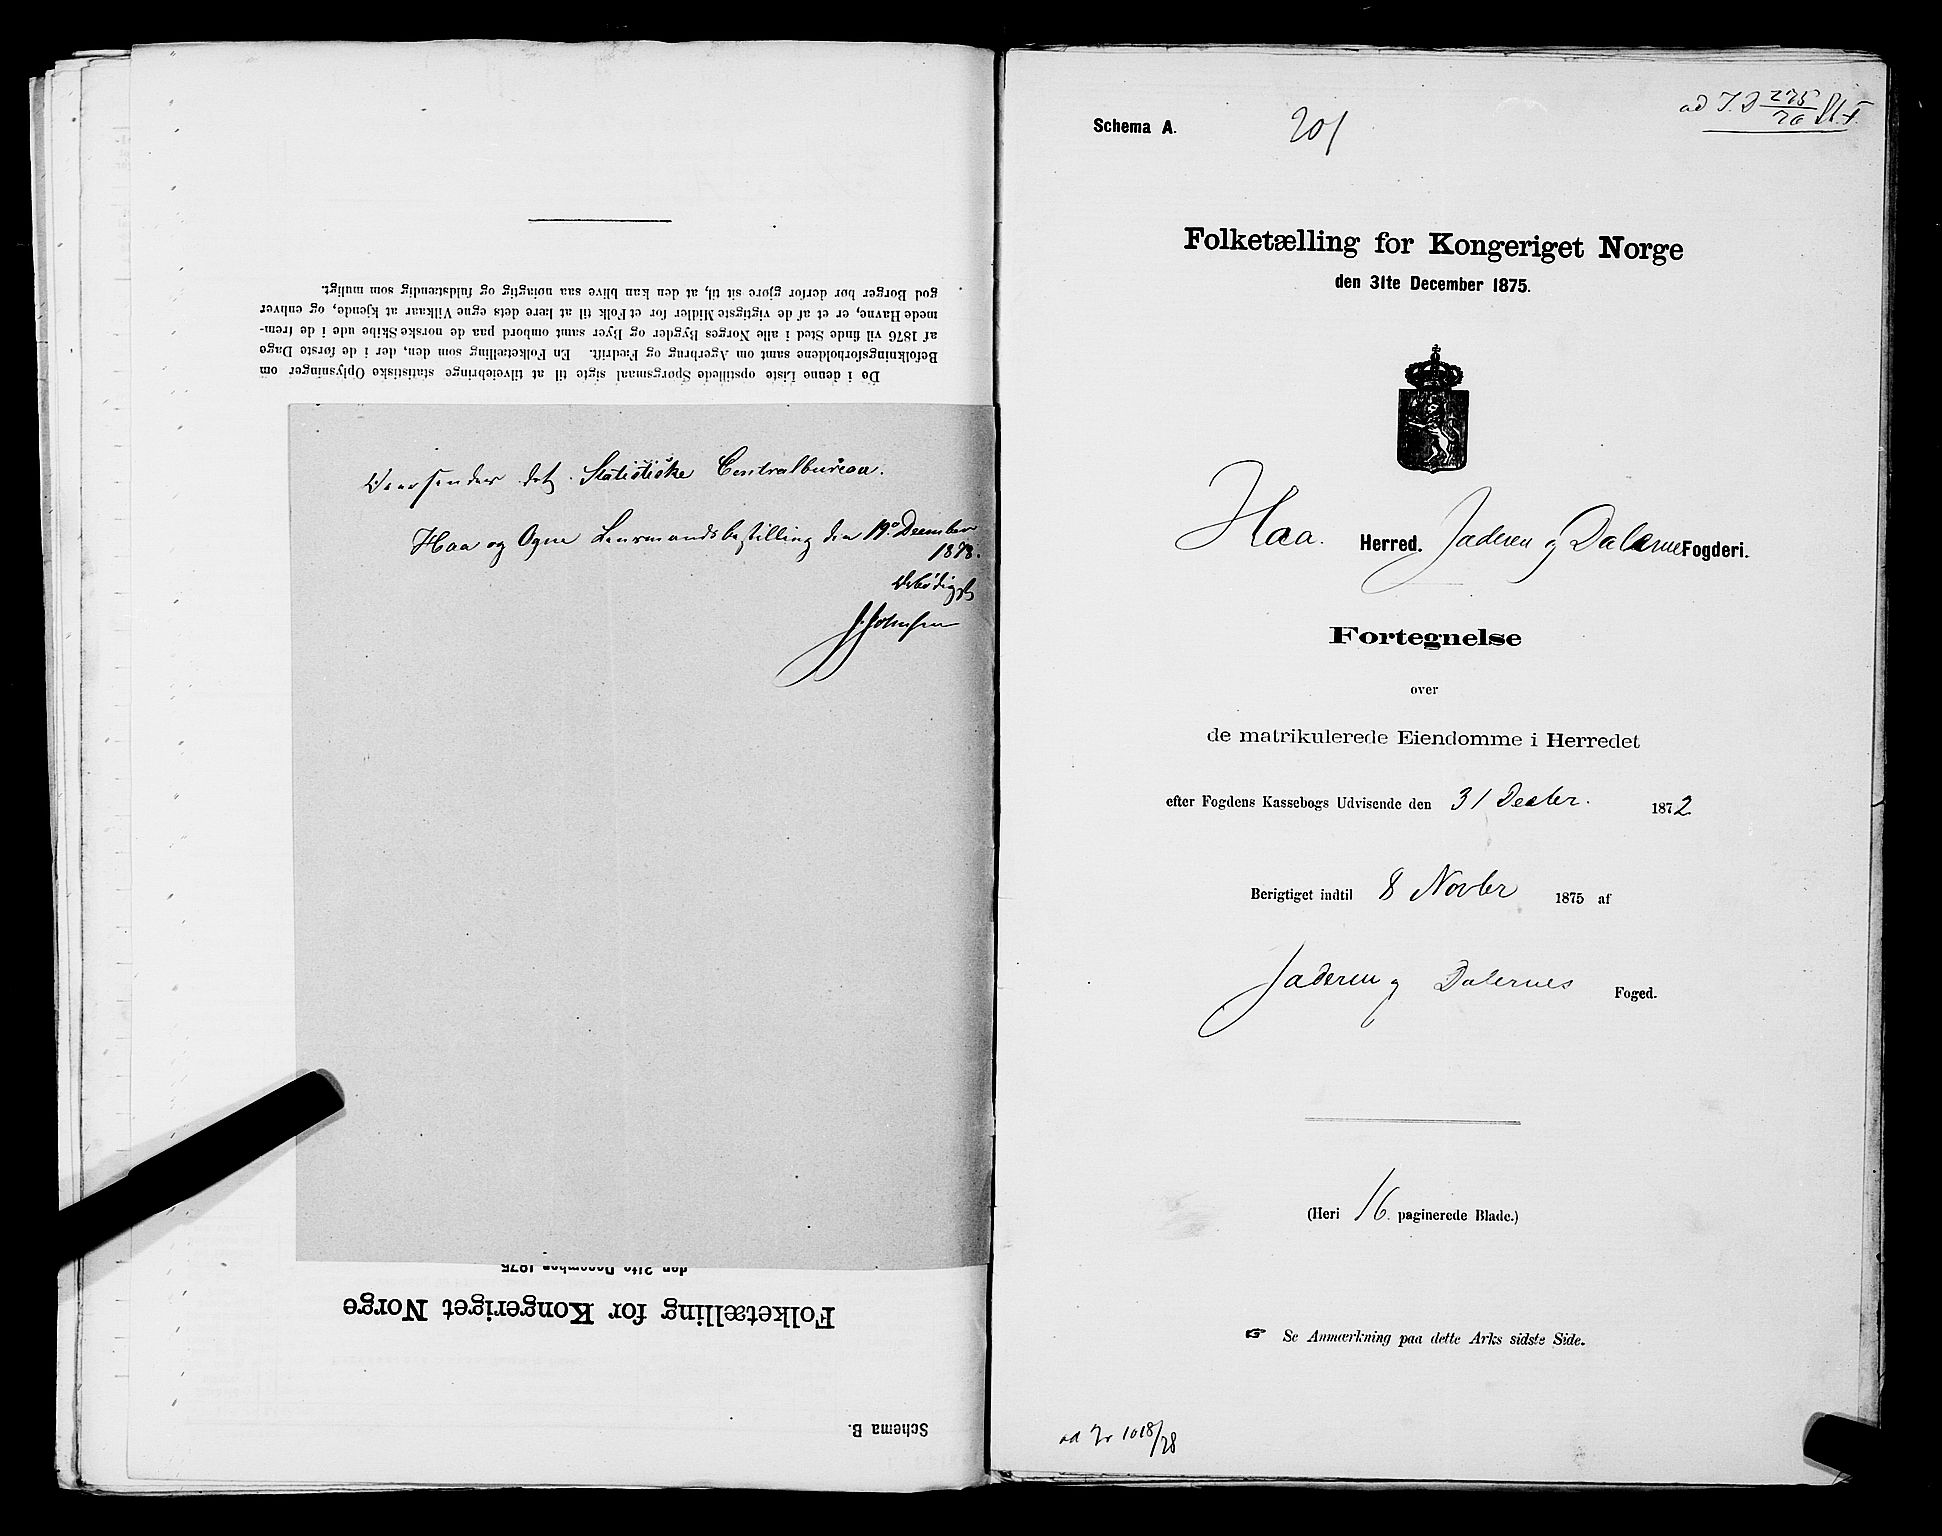 De i denne Liste opstillede Spørgsmaal sigte til at tilveiebringe statistiske Oplysninger om
Befolkningsforholdene samt om Agerbrug og Fædrift. En Folketælling som den, der i de første Dage
af 1876 vil finde Sted i alle Norges Bygder og Byer samt ombord paa de norske Skibe ude i de frem-
mede Havne, er et af de vigtigste Midler for et Folk til at lære dets egne Vilkaar at kjende, og enhver
god Borger bør derfor gjøre sit til, at den kan blive saa nøiagtig og fuldstændig som muligt.
det Statistiske Centralbureau.
Haa og Ogne Lensmandsbestilling den 19de December
Ærbødigst
J. Johnsen
den 31te December 1875
Folketælling for Kongeriget Norge
Schema B.
Schema A.
201
ad J. 275/76 St. F.
Folketælling for Kongeriget Norge
den 31te December 1875.
Haa. Herred. Jæderen og Dalerne Fogderi.
Fortegnelse
over
de matrikulerede Eiendomme i Herredet
efter Fogdens Kassebogs Udvisende den 31 Decbr. 1872
Berigtiget indtil 8 Novbr 1875 af
Jæderen og Dalernes Foged.
(Heri 16 paginerede Blade.)
☞ Se Anmærkning paa dette Arks sidste Side.
ad No 1018/78